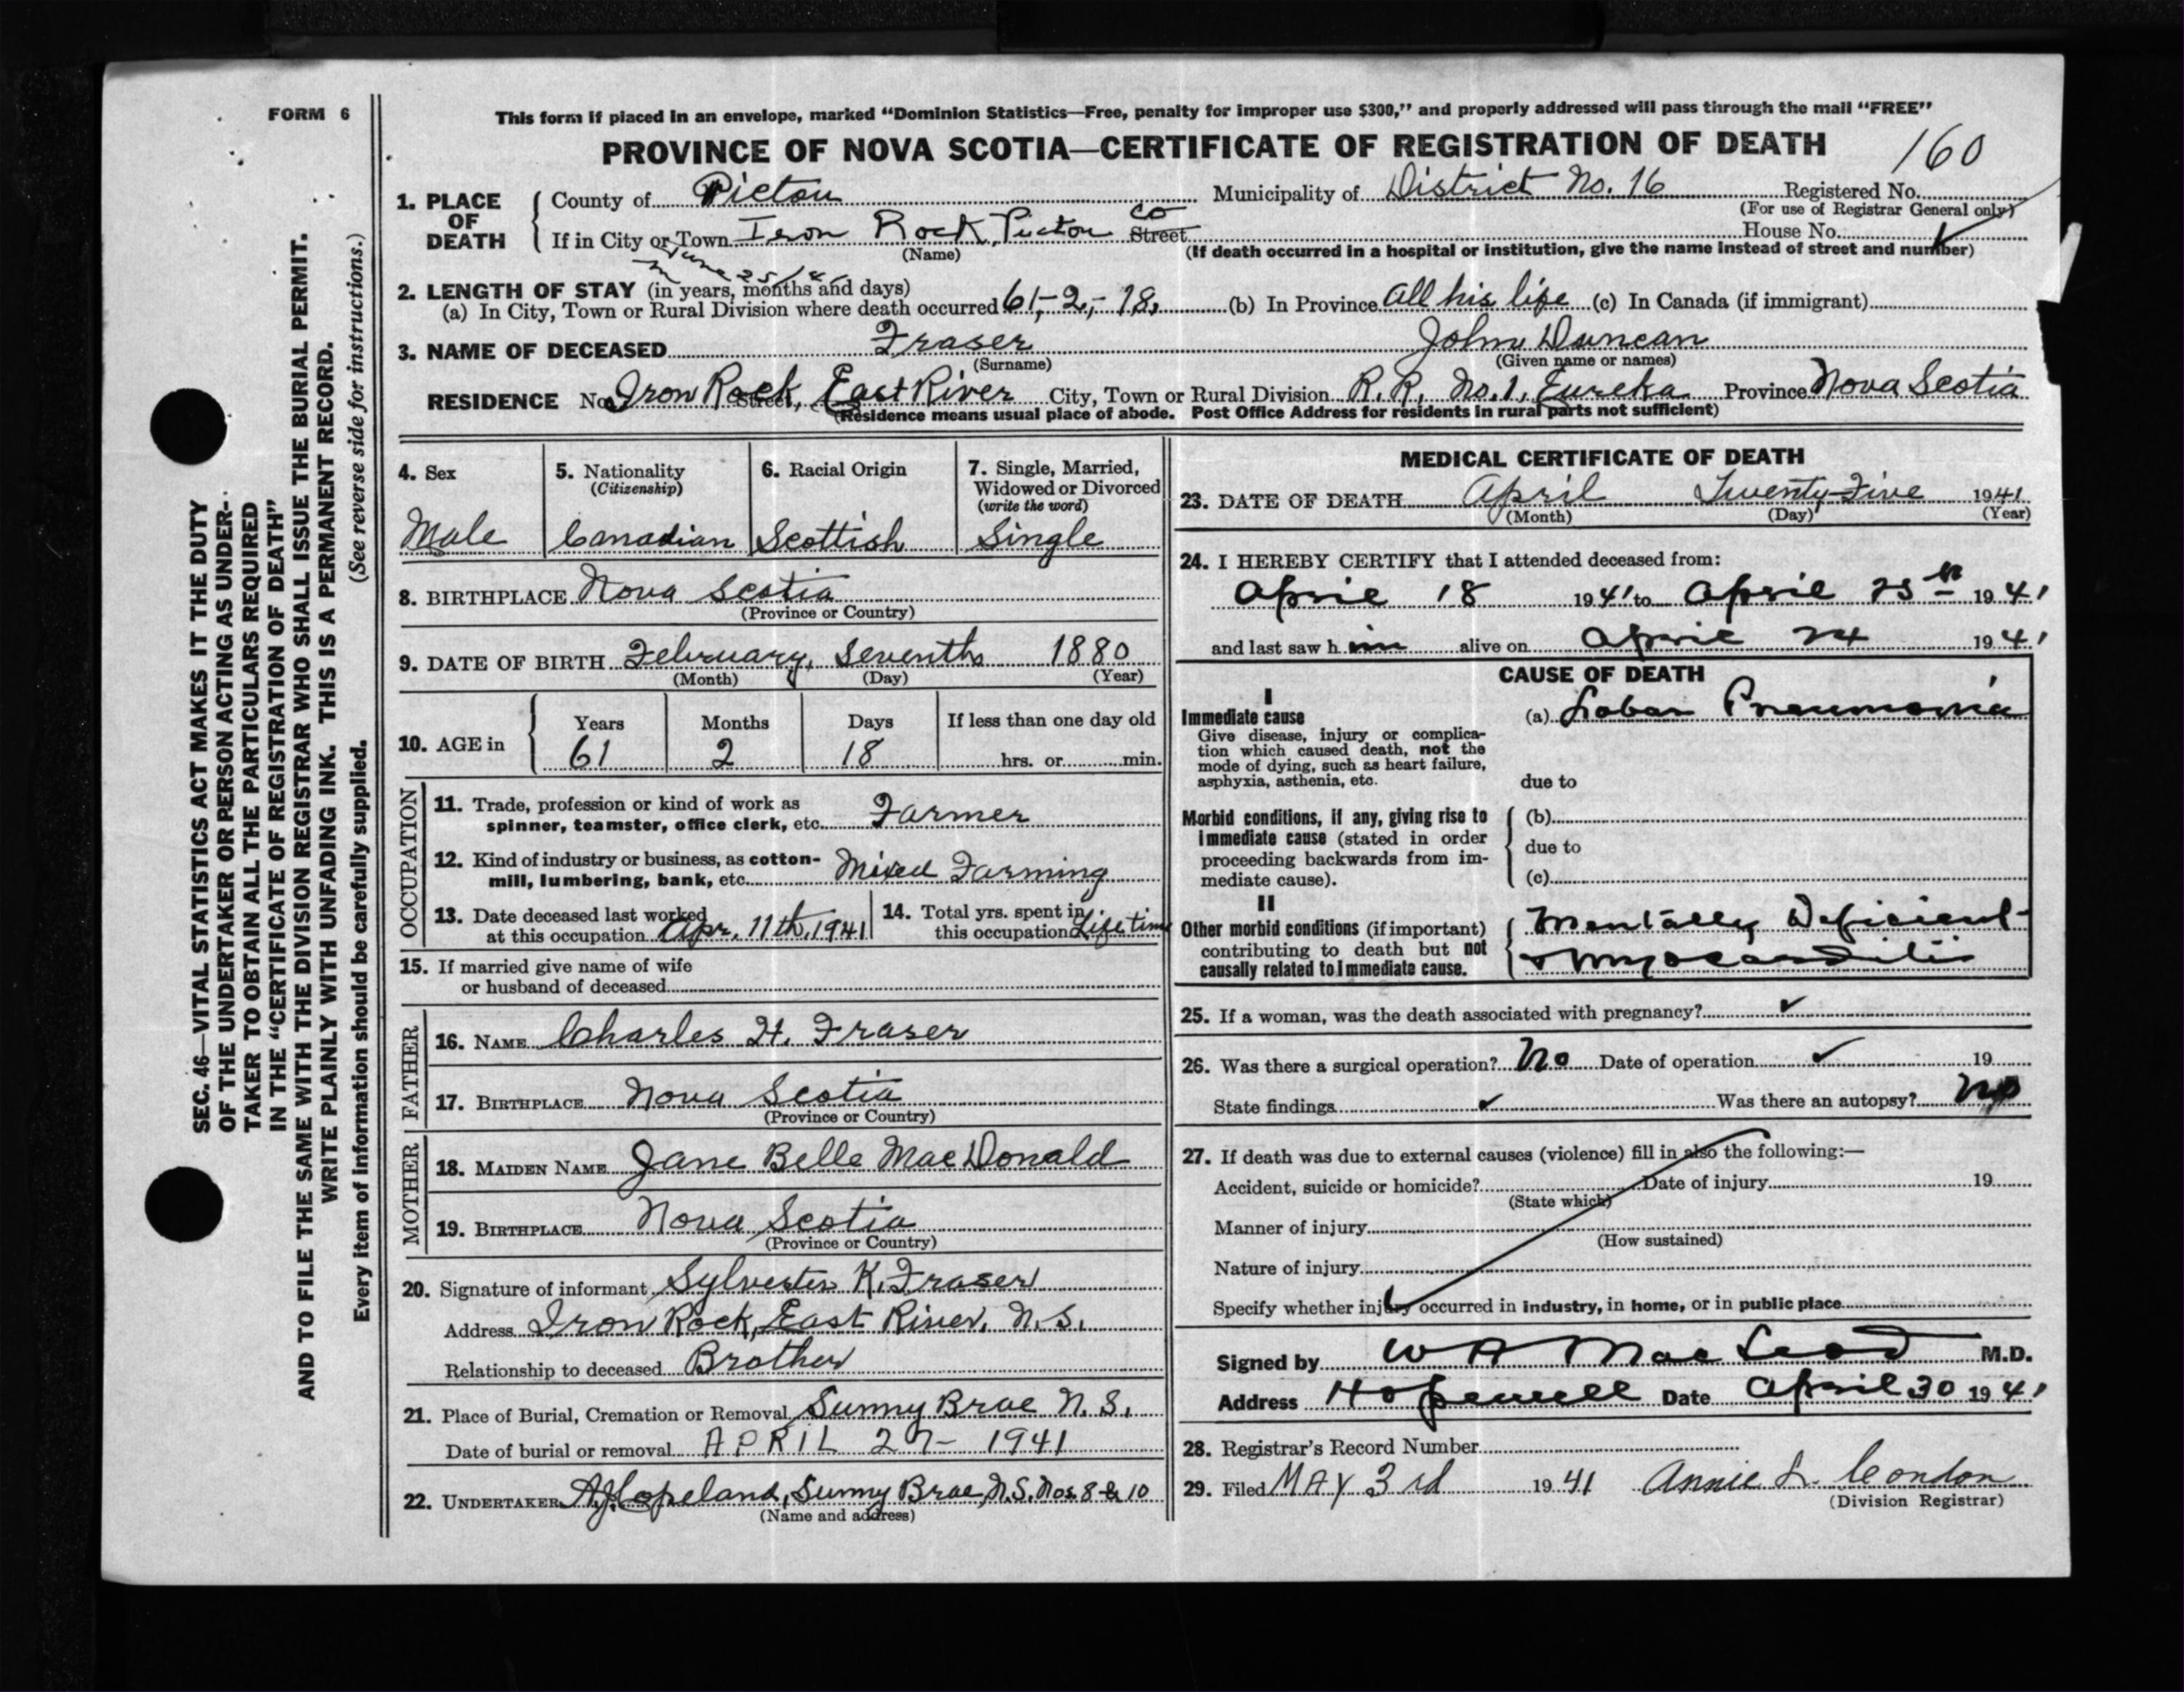 FORM 6
This form if placed in an envelope, marked "Dominion Statistics—Free, penalty for improper use $300," and properly addressed will pass through the mail "FREE"
PROVINCE OF NOVA SCOTIA—CERTIFICATE OF REGISTRATION OF DEATH
160
1. PLACE OF DEATH
County of Pictou Municipality of District No. 16 Registered No.
(For use of Registrar General only)
If in City or Town Iron Rock, Pictou Co Street House No.
(Name) (If death occurred in a hospital or institution, give the name instead of street and number)
June 25/45
2. LENGTH OF STAY (in years, months and days)
(a) In City, Town or Rural Division where death occurred 61-2-18. (b) In Province All his life (c) In Canada (if immigrant)
3. NAME OF DECEASED Fraser John Duncan
(Surname) (Given name or names)
RESIDENCE No. Iron Rock, Street, East River City, Town or Rural Division R.R. No.1, Eureka Province Nova Scotia
(Residence means usual place of abode. Post Office Address for residents in rural parts not sufficient)
4. Sex
Male
5. Nationality
(Citizenship)
Canadian
6. Racial Origin
Scottish
7. Single, Married,
Widowed or Divorced
(write the word)
Single
8. BIRTHPLACE Nova Scotia
(Province or Country)
9. DATE OF BIRTH February, Seventh 1880
(Month) (Day) (Year)
10. AGE in
Years Months Days If less than one day old
61 2 18 hrs. or min.
OCCUPATION
11. Trade, profession or kind of work as
spinner, teamster, office clerk, etc. Farmer
12. Kind of industry or business, as cotton-
mill, lumbering, bank, etc. Mixed Farming
13. Date deceased last worked
at this occupation Apr. 11th, 1941
14. Total yrs. spent in
this occupation Life time
15. If married give name of wife
or husband of deceased
FATHER
16. NAME Charles H. Fraser
17. BIRTHPLACE Nova Scotia
(Province or Country)
MOTHER
18. MAIDEN NAME Jane Belle MacDonald
19. BIRTHPLACE Nova Scotia
(Province or Country)
20. Signature of informant Sylvester K. Fraser
Address Iron Rock, East River, N.S.
Relationship to deceased Brother
21. Place of Burial, Cremation or Removal Sunny Brae N.S.
Date of burial or removal APRIL 27- 1941
22. UNDERTAKER A.J. Copeland, Sunny Brae, N.S. Nos. 8 & 10
(Name and address)
MEDICAL CERTIFICATE OF DEATH
23. DATE OF DEATH April Twenty-Five 1941
(Month) (Day) (Year)
24. I HEREBY CERTIFY that I attended deceased from:
April 18 1941 to April 25th 1941
and last saw him alive on April 24 1941
CAUSE OF DEATH
I
Immediate cause
Give disease, injury or complica-
tion which caused death, not the
mode of dying, such as heart failure,
asphyxia, asthenia, etc.
(a) Lobar Pneumonia
due to
Morbid conditions, if any, giving rise to
immediate cause (stated in order
proceeding backwards from im-
mediate cause).
(b)
due to
(c)
II
Other morbid conditions (if important)
contributing to death but not
causally related to immediate cause.
Mentally Deficient
+ Myocarditis
25. If a woman, was the death associated with pregnancy? ✓
26. Was there a surgical operation? No Date of operation ✓ 19
State findings ✓ Was there an autopsy? No
27. If death was due to external causes (violence) fill in also the following:—
Accident, suicide or homicide? Date of injury 19
(State which)
Manner of injury
(How sustained)
Nature of injury
Specify whether injury occurred in industry, in home, or in public place
Signed by W A MacLeod M.D.
Address Hopewell Date April 30 1941
28. Registrar's Record Number
29. Filed MAY 3rd 1941 Annie L. Condon
(Division Registrar)
SEC. 46—VITAL STATISTICS ACT MAKES IT THE DUTY
OF THE UNDERTAKER OR PERSON ACTING AS UNDER-
TAKER TO OBTAIN ALL THE PARTICULARS REQUIRED
IN THE "CERTIFICATE OF REGISTRATION OF DEATH"
AND TO FILE THE SAME WITH THE DIVISION REGISTRAR WHO SHALL ISSUE THE BURIAL PERMIT.
WRITE PLAINLY WITH UNFADING INK. THIS IS A PERMANENT RECORD.
Every item of information should be carefully supplied. (See reverse side for instructions.)